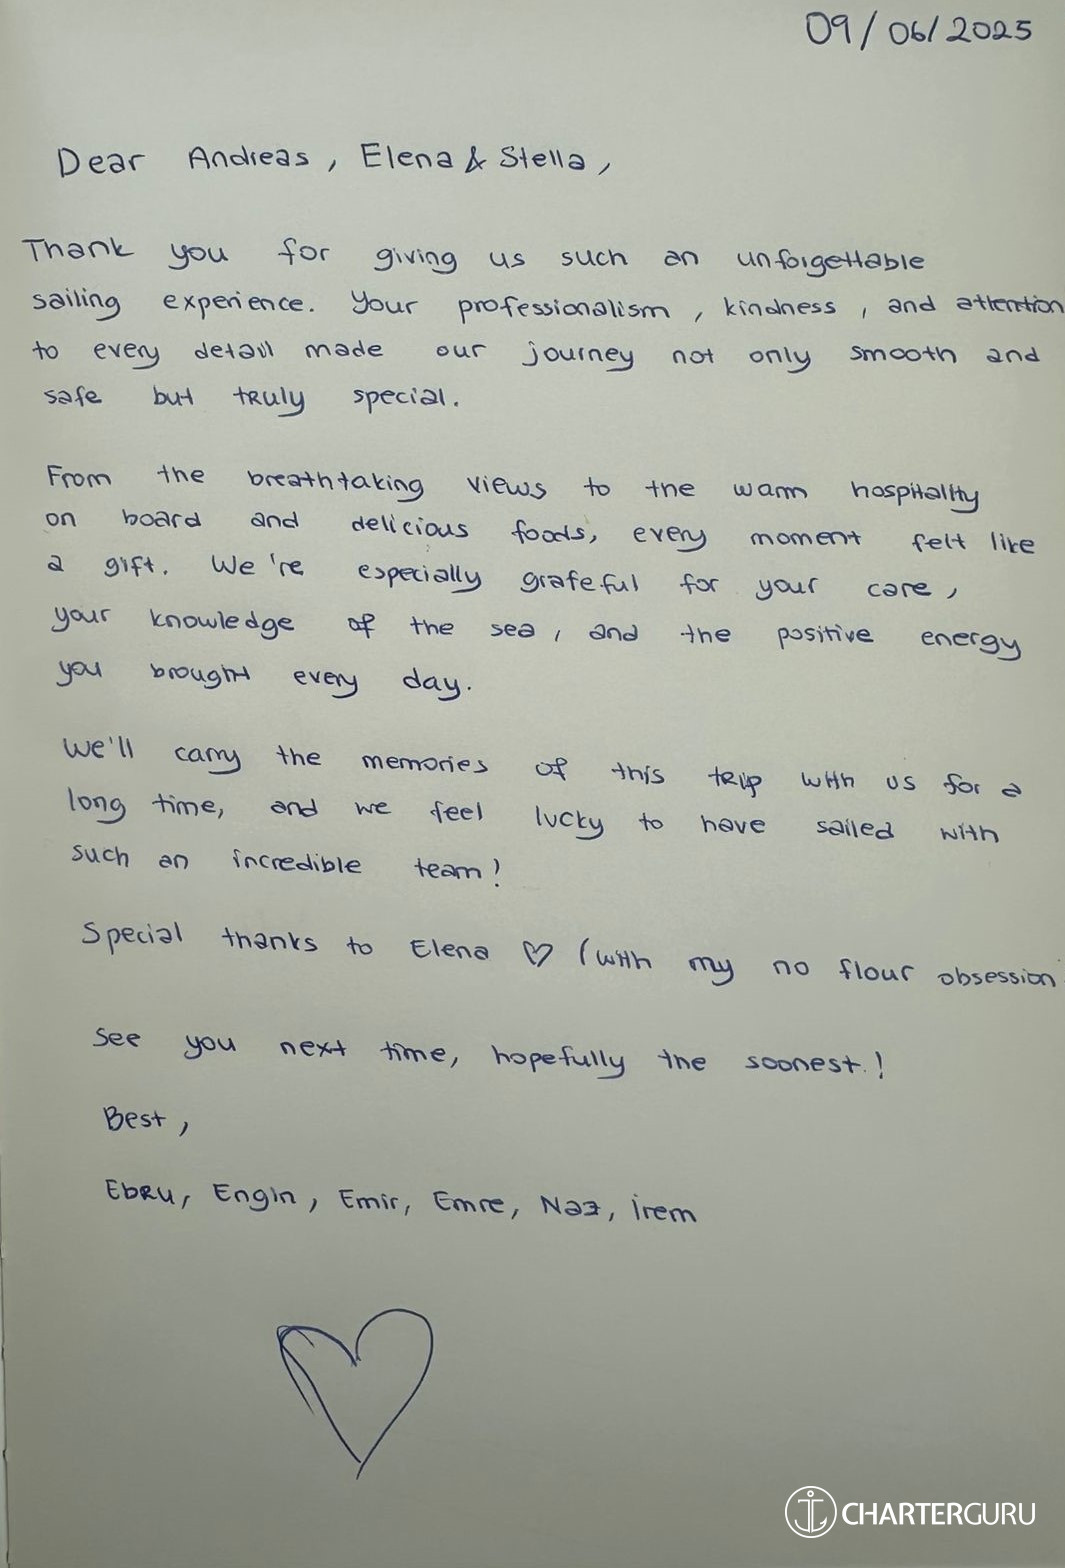 09/06/2025
Dear Andreas, Elena & Stella,
Thank you for giving us such an unforgettable
sailing experience. Your professionalism, kindness, and attention
to every detail made our journey not only smooth and
safe but truly special.
From the breathtaking views to the warm hospitality
on board and delicious foods, every moment felt like
a gift. We're especially grateful for your care,
your knowledge of the sea, and the positive energy
you brought every day.
We'll carry the memories of this trip with us for a
long time, and we feel lucky to have sailed with
such an incredible team!
Special thanks to Elena ♡ (with my no flour obsession
See you next time, hopefully the soonest!
Best,
Ebru, Engin, Emir, Emre, Naz, İrem
CHARTERGURU